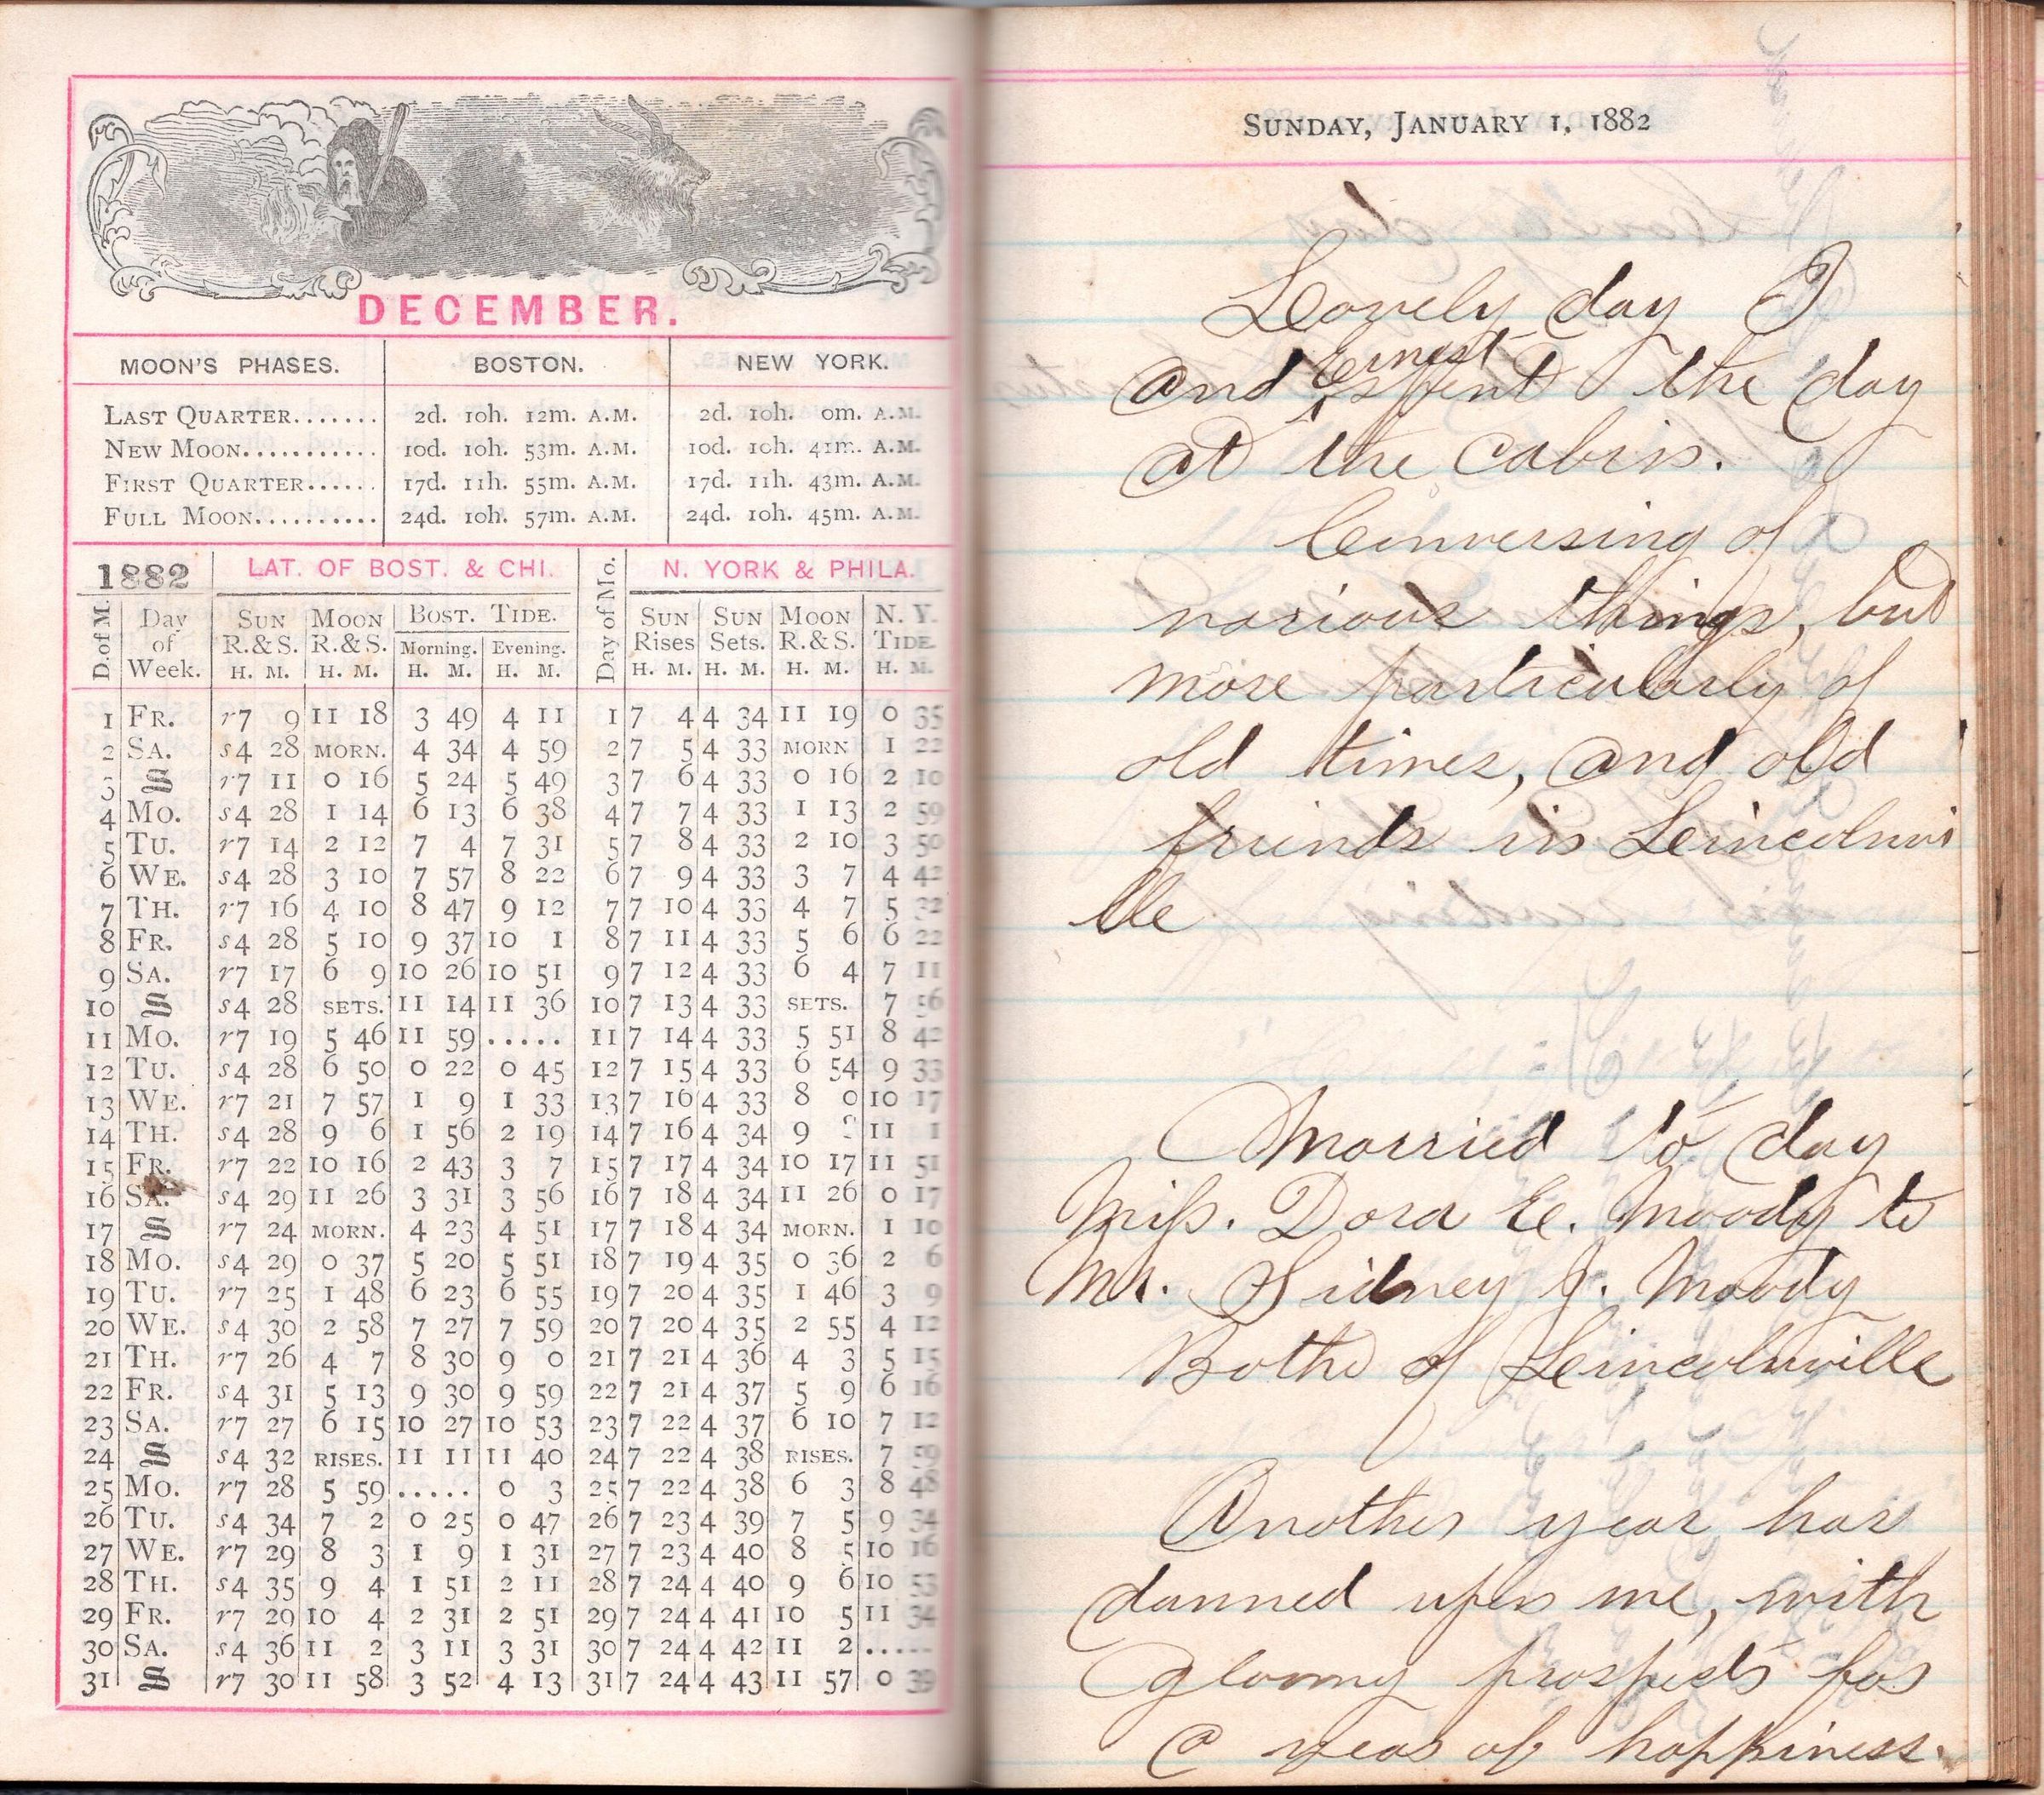 DECEMBER.
MOON'S PHASES. BOSTON. NEW YORK.
LAST QUARTER....... 2d. 10h. 12m. A.M. 2d. 10h. 0m. A.M.
NEW MOON........... 10d. 10h. 53m. A.M. 10d. 10h. 41m. A.M.
FIRST QUARTER...... 17d. 11h. 55m. A.M. 17d. 11h. 43m. A.M.
FULL MOON.......... 24d. 10h. 57m. A.M. 24d. 10h. 45m. A.M.
1882 LAT. OF BOST. & CHI. Day of Mo. N. YORK & PHILA.
D. of M. Day of Week. SUN R.&S. MOON R.&S. BOST. TIDE. SUN Rises SUN Sets. MOON R.&S. N. Y. TIDE.
Morning. Evening.
H. M. H. M. H. M. H. M. H. M. H. M. H. M. H. M.
1 FR. r7 9 11 18 3 49 4 11 1 7 4 4 34 11 19 0 35
2 SA. s4 28 MORN. 4 34 4 59 2 7 5 4 33 MORN 1 22
3 S r7 11 0 16 5 24 5 49 3 7 6 4 33 0 16 2 10
4 MO. s4 28 1 14 6 13 6 38 4 7 7 4 33 1 13 2 59
5 TU. r7 14 2 12 7 4 7 31 5 7 8 4 33 2 10 3 50
6 WE. s4 28 3 10 7 57 8 22 6 7 9 4 33 3 7 4 42
7 TH. r7 16 4 10 8 47 9 12 7 7 10 4 33 4 7 5 32
8 FR. s4 28 5 10 9 37 10 1 8 7 11 4 33 5 6 6 22
9 SA. r7 17 6 9 10 26 10 51 9 7 12 4 33 6 4 7 11
10 S s4 28 SETS. 11 14 11 36 10 7 13 4 33 SETS. 7 56
11 MO. r7 19 5 46 11 59 ..... 11 7 14 4 33 5 51 8 42
12 TU. s4 28 6 50 0 22 0 45 12 7 15 4 33 6 54 9 33
13 WE. r7 21 7 57 1 9 1 33 13 7 16 4 33 8 0 10 17
14 TH. s4 28 9 6 1 56 2 19 14 7 16 4 34 9 11 1
15 FR. r7 22 10 16 2 43 3 7 15 7 17 4 34 10 17 11 51
16 SA. s4 29 11 26 3 31 3 56 16 7 18 4 34 11 26 0 17
17 S r7 24 MORN. 4 23 4 51 17 7 18 4 34 MORN. 1 10
18 MO. s4 29 0 37 5 20 5 51 18 7 19 4 35 0 36 2 6
19 TU. r7 25 1 48 6 23 6 55 19 7 20 4 35 1 46 3 9
20 WE. s4 30 2 58 7 27 7 59 20 7 20 4 35 2 55 4 12
21 TH. r7 26 4 7 8 30 9 0 21 7 21 4 36 4 3 5 15
22 FR. s4 31 5 13 9 30 9 59 22 7 21 4 37 5 9 6 16
23 SA. r7 27 6 15 10 27 10 53 23 7 22 4 37 6 10 7 12
24 S s4 32 RISES. 11 11 11 40 24 7 22 4 38 RISES. 7 59
25 MO. r7 28 5 59 ..... 0 3 25 7 22 4 38 6 3 8 48
26 TU. s4 34 7 2 0 25 0 47 26 7 23 4 39 7 5 9 34
27 WE. r7 29 8 3 1 9 1 31 27 7 23 4 40 8 5 10 16
28 TH. s4 35 9 4 1 51 2 11 28 7 24 4 40 9 6 10 53
29 FR. r7 29 10 4 2 31 2 51 29 7 24 4 41 10 5 11 34
30 SA. s4 36 11 2 3 11 3 31 30 7 24 4 42 11 2 .....
31 S r7 30 11 58 3 52 4 13 31 7 24 4 43 11 57 0 39
SUNDAY, JANUARY 1, 1882
Lovely day I
and Ernest spent the day
at the cabin.
Conversing of
various things, but
more particularly of
old times, and old
friends in Leincolnvi
lle
Married to day
Miss. Dora E. Moody to
Mr. Sidney J. Moody
Bothe of Leincolnville
Another year has
danned upon me, with
gloomy prospects for
a year of happiness.